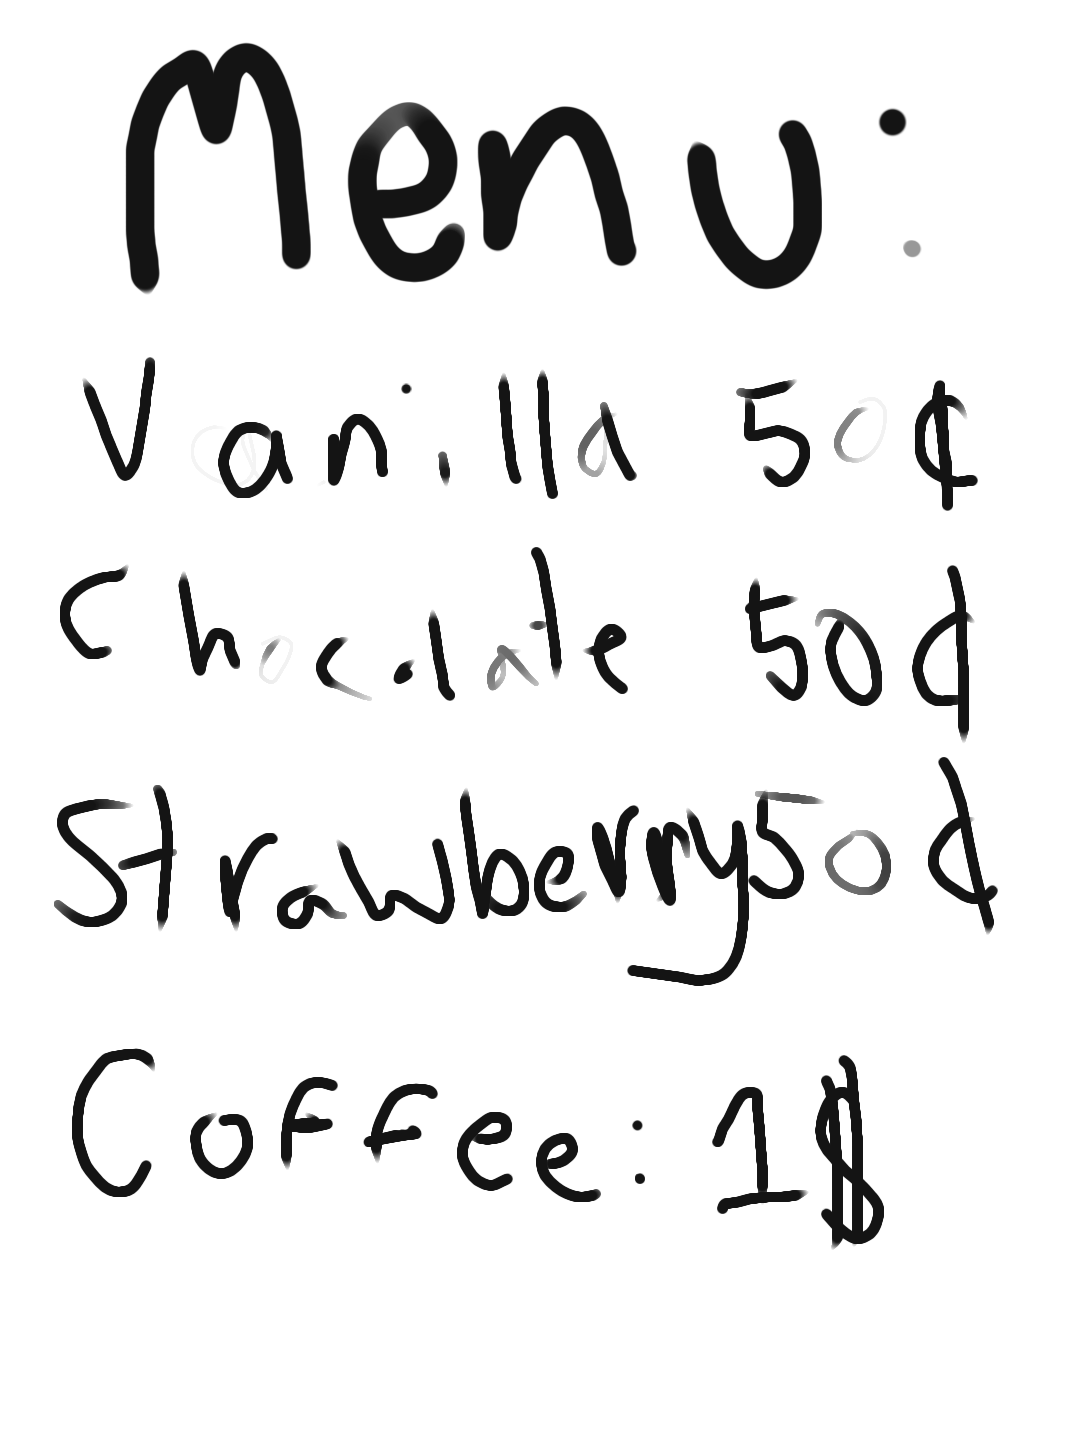 Menu:
Vanilla 50¢
Chocolate 50¢
Strawberry 50¢
Coffee: 1$